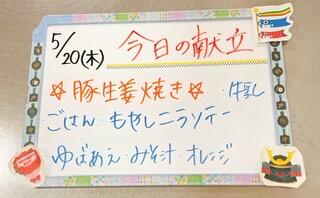 5/20(木) 今日の献立
☆豚生姜焼き☆ ・牛乳
ごはん・もやしニラソテー
ゆばあえ・みそ汁・オレンジ